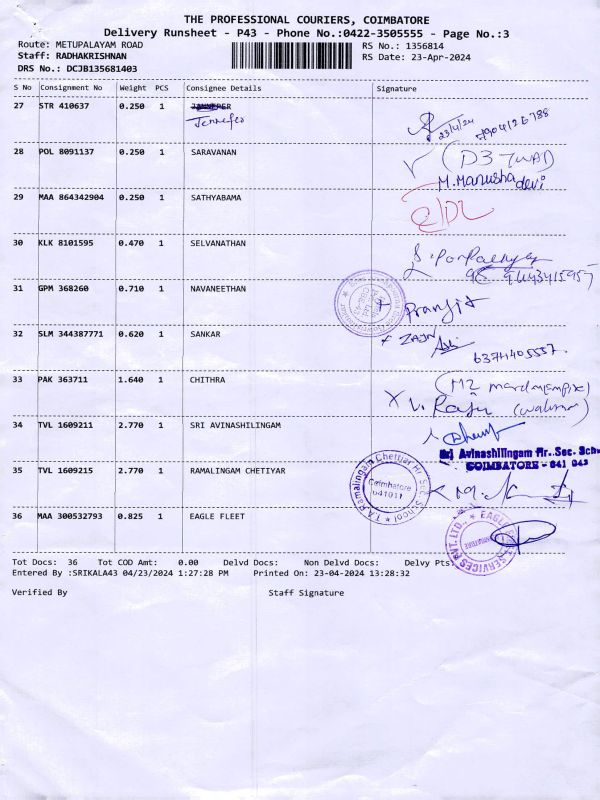 THE PROFESSIONAL COURIERS, COIMBATORE
Delivery Runsheet - P43 - Phone No.:0422-3505555 - Page No.:3
Route: METUPALAYAM ROAD
Staff: RADHAKRISHNAN
DRS No.: DCJB135681403
RS No.: 1356814
RS Date: 23-Apr-2024
S No Consignment No Weight PCS Consignee Details Signature
27 STR 410637 0.250 1
Jennefer
23/4/24
28 POL 8091137 0.250 1 SARAVANAN
M. Manusha devi
29 MAA 864342904 0.250 1 SATHYABAMA
30 KLK 8101595 0.470 1 SELVANATHAN
31 GPM 368260 0.710 1 NAVANEETHAN
Pranjit
32 SLM 344387771 0.620 1 SANKAR
33 PAK 363711 1.640 1 CHITHRA
34 TVL 1609211 2.770 1 SRI AVINASHILINGAM
Sri Avinashilingam Hr. Sec. Sch
COIMBATORE - 641 043
35 TVL 1609215 2.770 1 RAMALINGAM CHETIYAR
T.A. Ramalingam Chettiar Hr Sec School
Coimbatore
641011
36 MAA 300532793 0.825 1 EAGLE FLEET
EAGLE
SERVICES PVT. LTD.,
Tot Docs: 36 Tot COD Amt: 0.00 Delvd Docs: Non Delvd Docs: Delvy Pts:
Entered By :SRIKALA43 04/23/2024 1:27:28 PM Printed On: 23-04-2024 13:28:32
Verified By Staff Signature